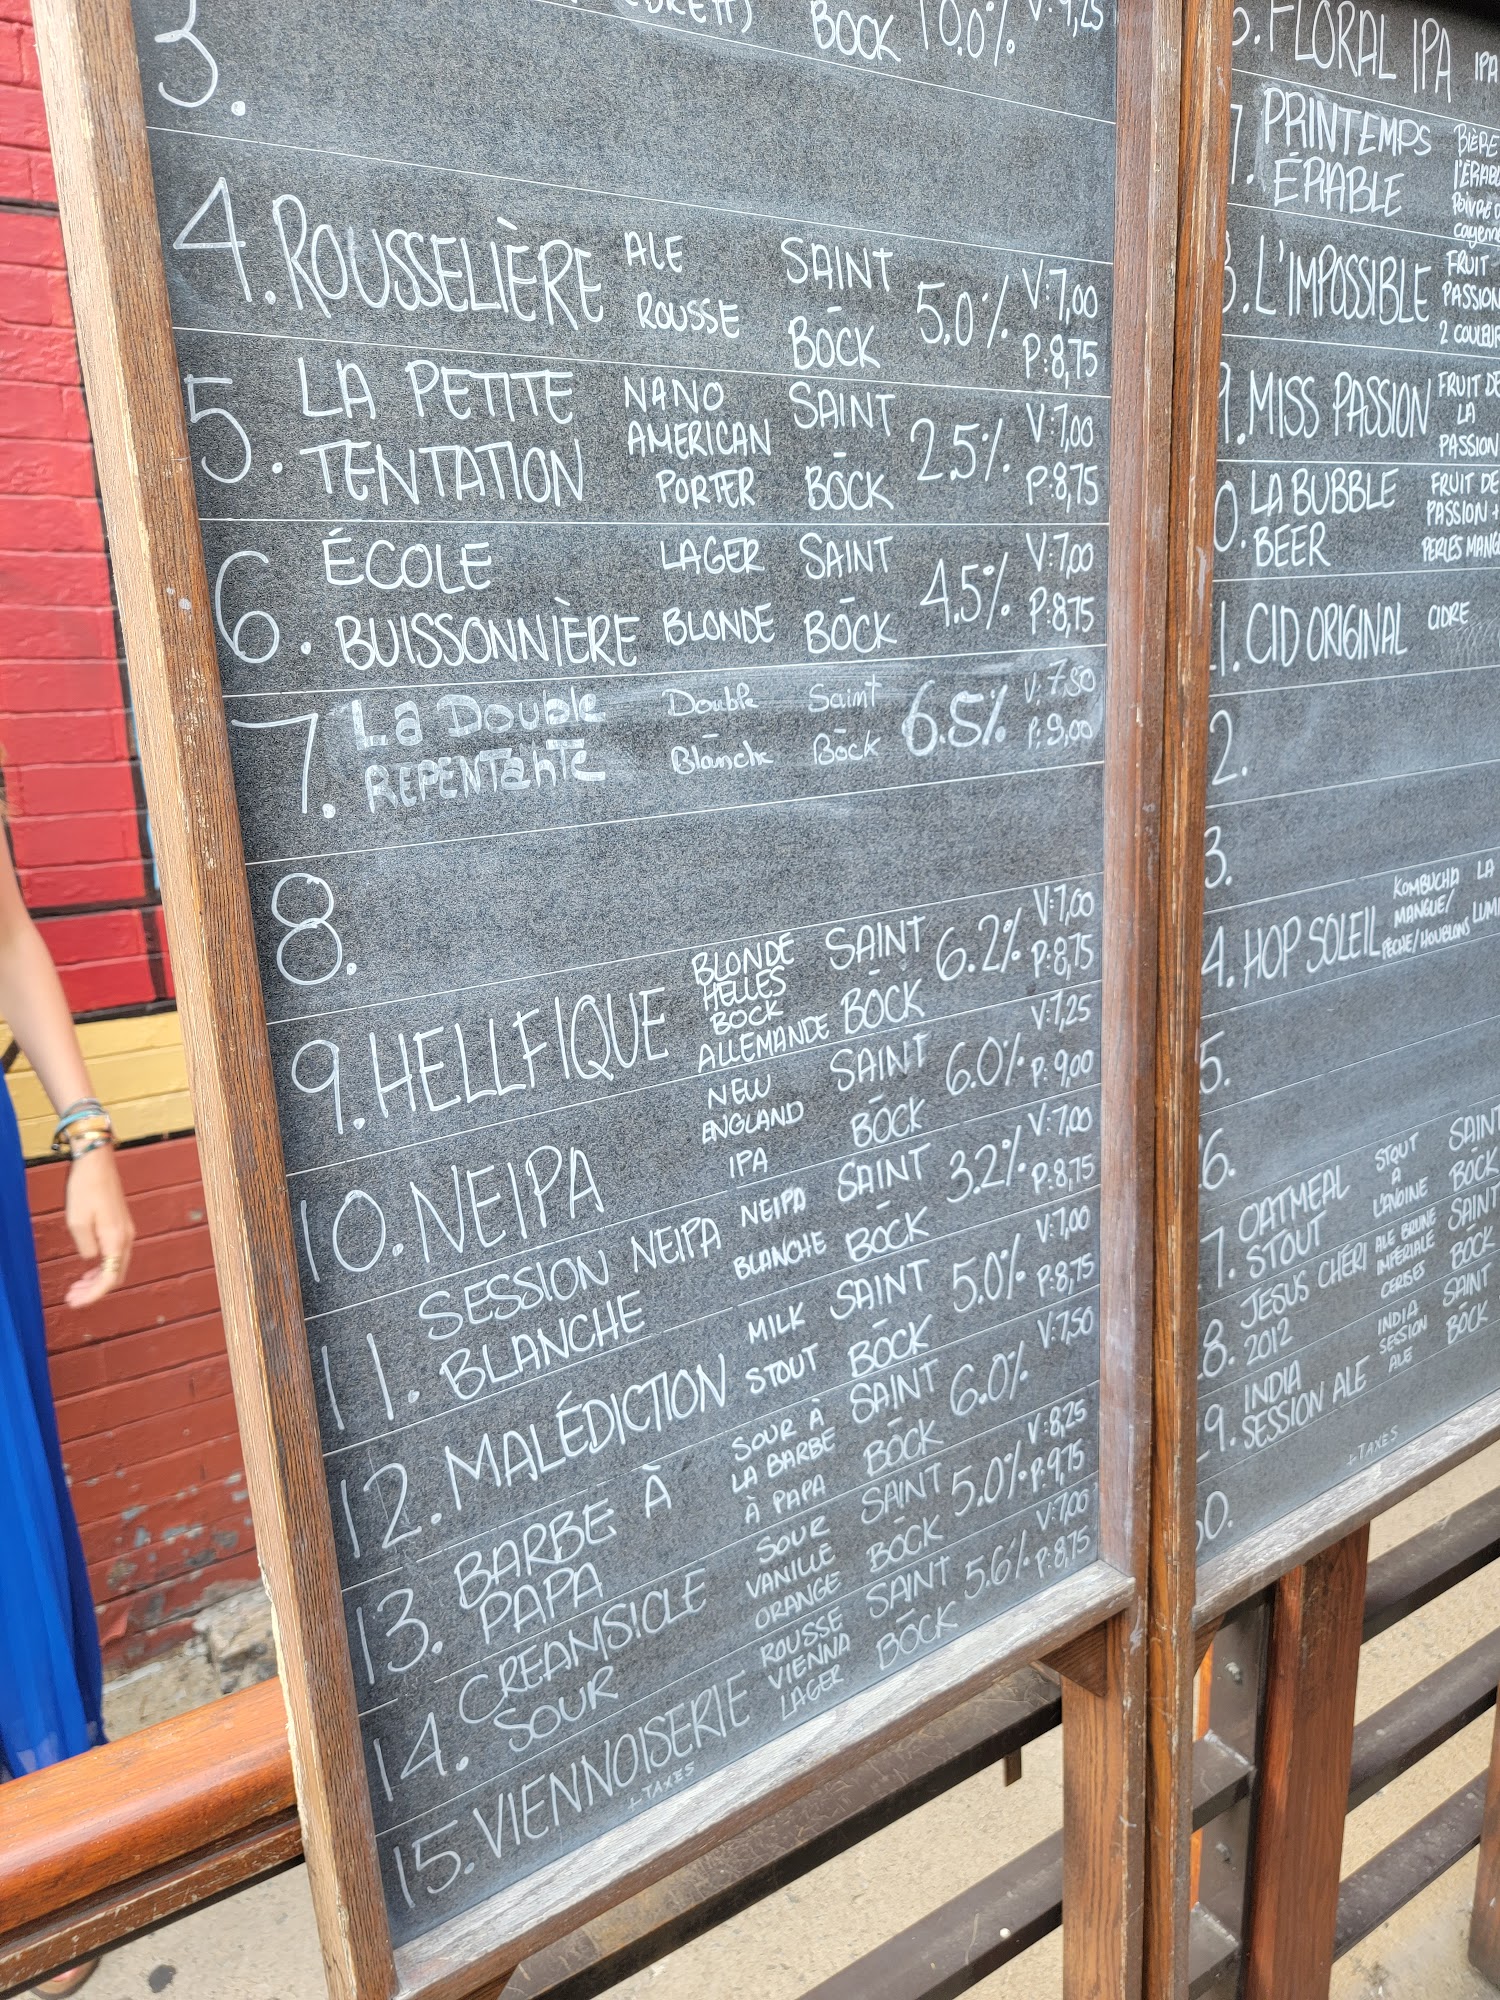 BOCK 10.0% V: 9,25
3.
4. ROUSSELIÈRE ALE ROUSSE SAINT BOCK 5.0% V:7,00 P:8,75
5. LA PETITE TENTATION NANO AMERICAN PORTER SAINT BOCK 2.5% V:7,00 P:8,75
6. ÉCOLE BUISSONNIÈRE LAGER BLONDE SAINT BOCK 4.5% V:7,00 P:8,75
7. La Double REPENTANTE Double Blanche Saint Bock 6.5% V: 7.50 P: 9,00
8.
9. HELLFIQUE BLONDE HELLES BOCK ALLEMANDE SAINT BOCK 6.2% V:7,00 P:8,75
10. NEIPA NEW ENGLAND IPA SAINT BOCK 6.0% V:7,25 P: 9,00
11. SESSION NEIPA BLANCHE NEIPA BLANCHE SAINT BOCK 3.2% V:7,00 P:8,75
12. MALÉDICTION MILK STOUT SAINT BOCK 5.0% V:7,00 P:8,75
13. BARBE À PAPA SOUR À LA BARBE À PAPA SAINT BOCK 6.0% V:7,50
14. CREAMSICLE SOUR SOUR VANILLE ORANGE SAINT BOCK 5.0% V:8,25 P:9,75
15. VIENNOISERIE ROUSSE VIENNA LAGER SAINT BOCK 5.6% V:7,00 P:8,75
+TAXES
6. FLORAL IPA IPA
7. PRINTEMPS ÉRIABLE BIÈRE L'ÉRABL POIVRE cayenne
8. L'IMPOSSIBLE FRUIT PASSION 2 COULEUR
9. MISS PASSION FRUIT DE LA PASSION
0. LA BUBBLE BEER FRUIT DE PASSION + PERLES MANG
1. CID ORIGINAL CIDRE
2.
3.
4. HOP SOLEIL KOMBUCHA MANGUE/ PÊCHE/HOUBLONS LA LUM
5.
6.
7. OATMEAL STOUT STOUT À L'AVOINE SAINT BOCK
8. JESUS CHÉRI 2012 ALE BRUNE IMPÉRIALE CERISES SAINT BOCK
9. INDIA SESSION ALE INDIA SESSION ALE SAINT BOCK
0.
+TAXES